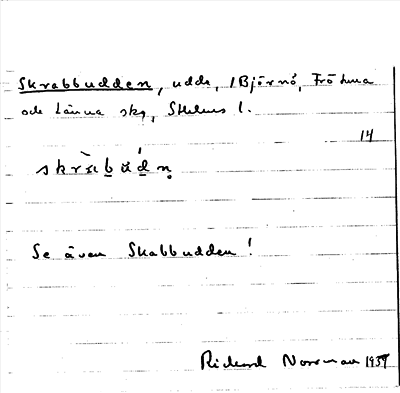 Skrabbudden, udde, / Björnö, Frötuna
och Länna skg, Sthlms l.
14
skràbúdṇ
Se även Skabbudden!
Rickard Norrman 1939